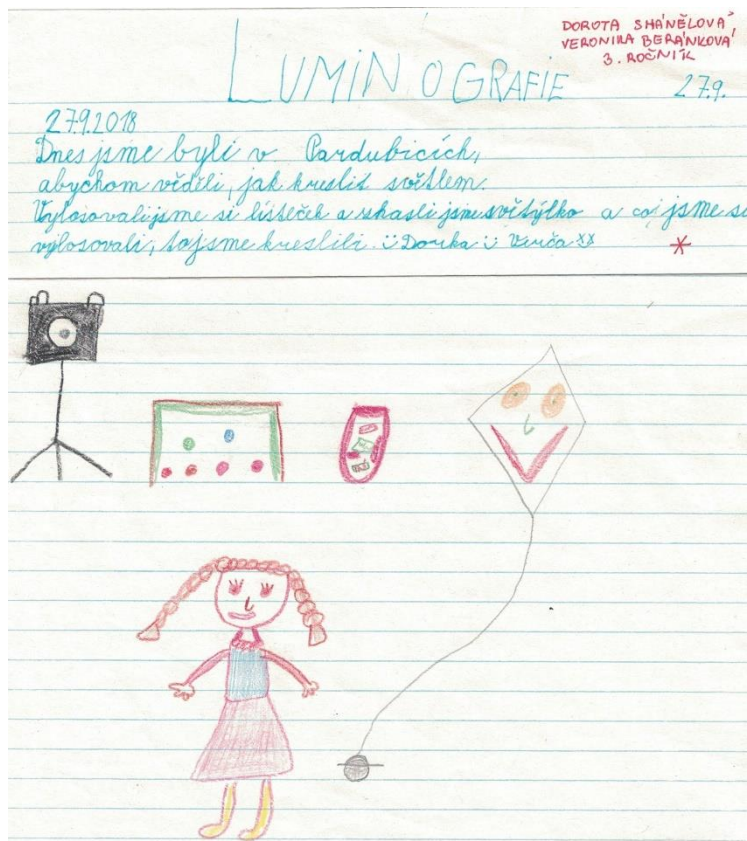 DOROTA SHÁNĚLOVÁ
VERONIKA BERÁNKOVÁ
3. ROČNÍK
LUMINOGRAFIE
27.9.
27.9.2018
Dnes jsme byli v Pardubicích,
abychom věděli, jak kreslit světlem.
Vylosovali jsme si lísteček a zhasli jsme světýlko a co jsme si
vylosovali, to jsme kreslili. Dorka Verča xx